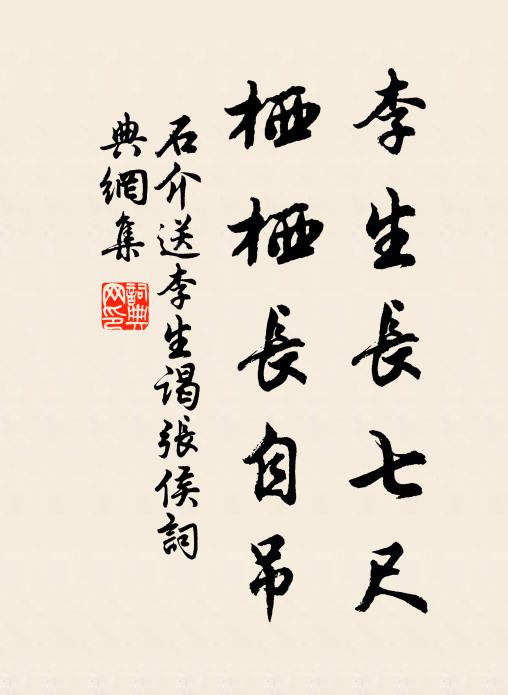 李生長七尺
栖栖長自吊
石介送李生謁張侯詞
典網集
詞典網印